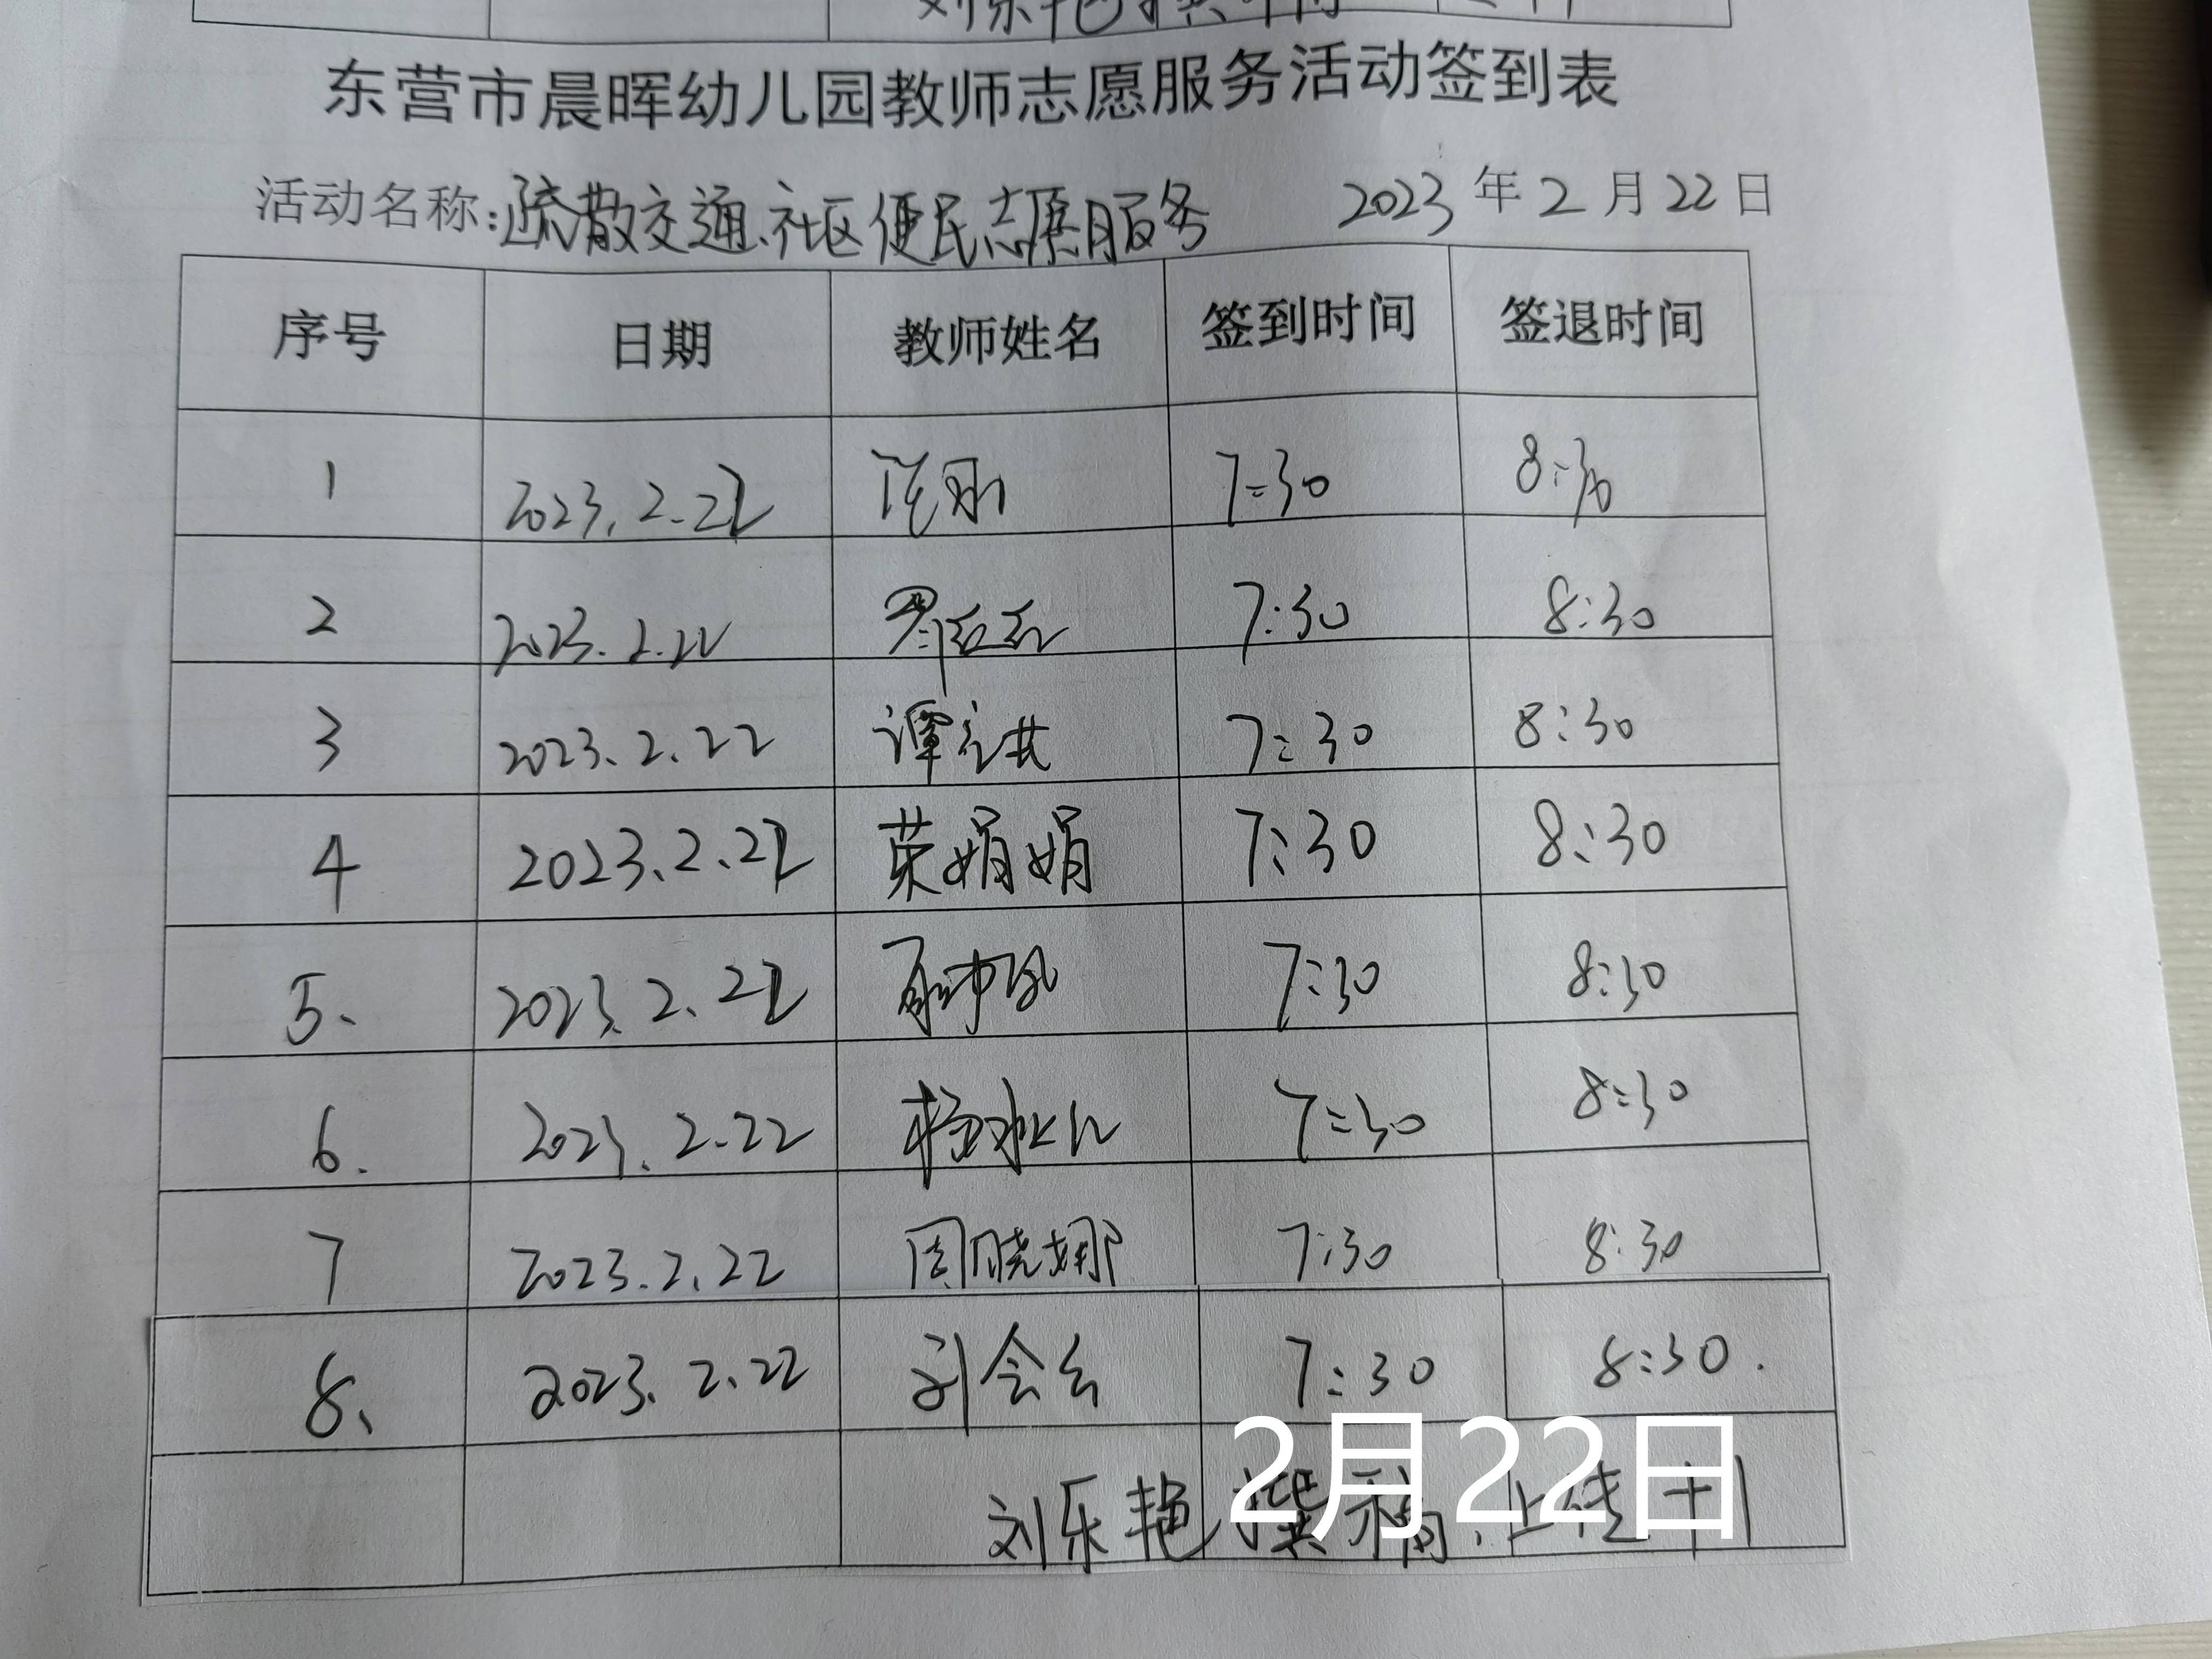 东营市晨晖幼儿园教师志愿服务活动签到表
活动名称:疏散交通、社区便民志愿服务 2023年2月22日
序号 日期 教师姓名 签到时间 签退时间
1 2023.2.22 7:30 8:30
2 2023.2.22 7:30 8:30
3 2023.2.22 7:30 8:30
4 2023.2.22 荣娟娟 7:30 8:30
5、 2023.2.22 7:30 8:30
6. 2023.2.22 7:30 8:30
7 2023.2.22 周晓娜 7:30 8:30
8、 2023.2.22 刘会云 7:30 8:30.
2月22日
刘乐艳撰稿、上传+1